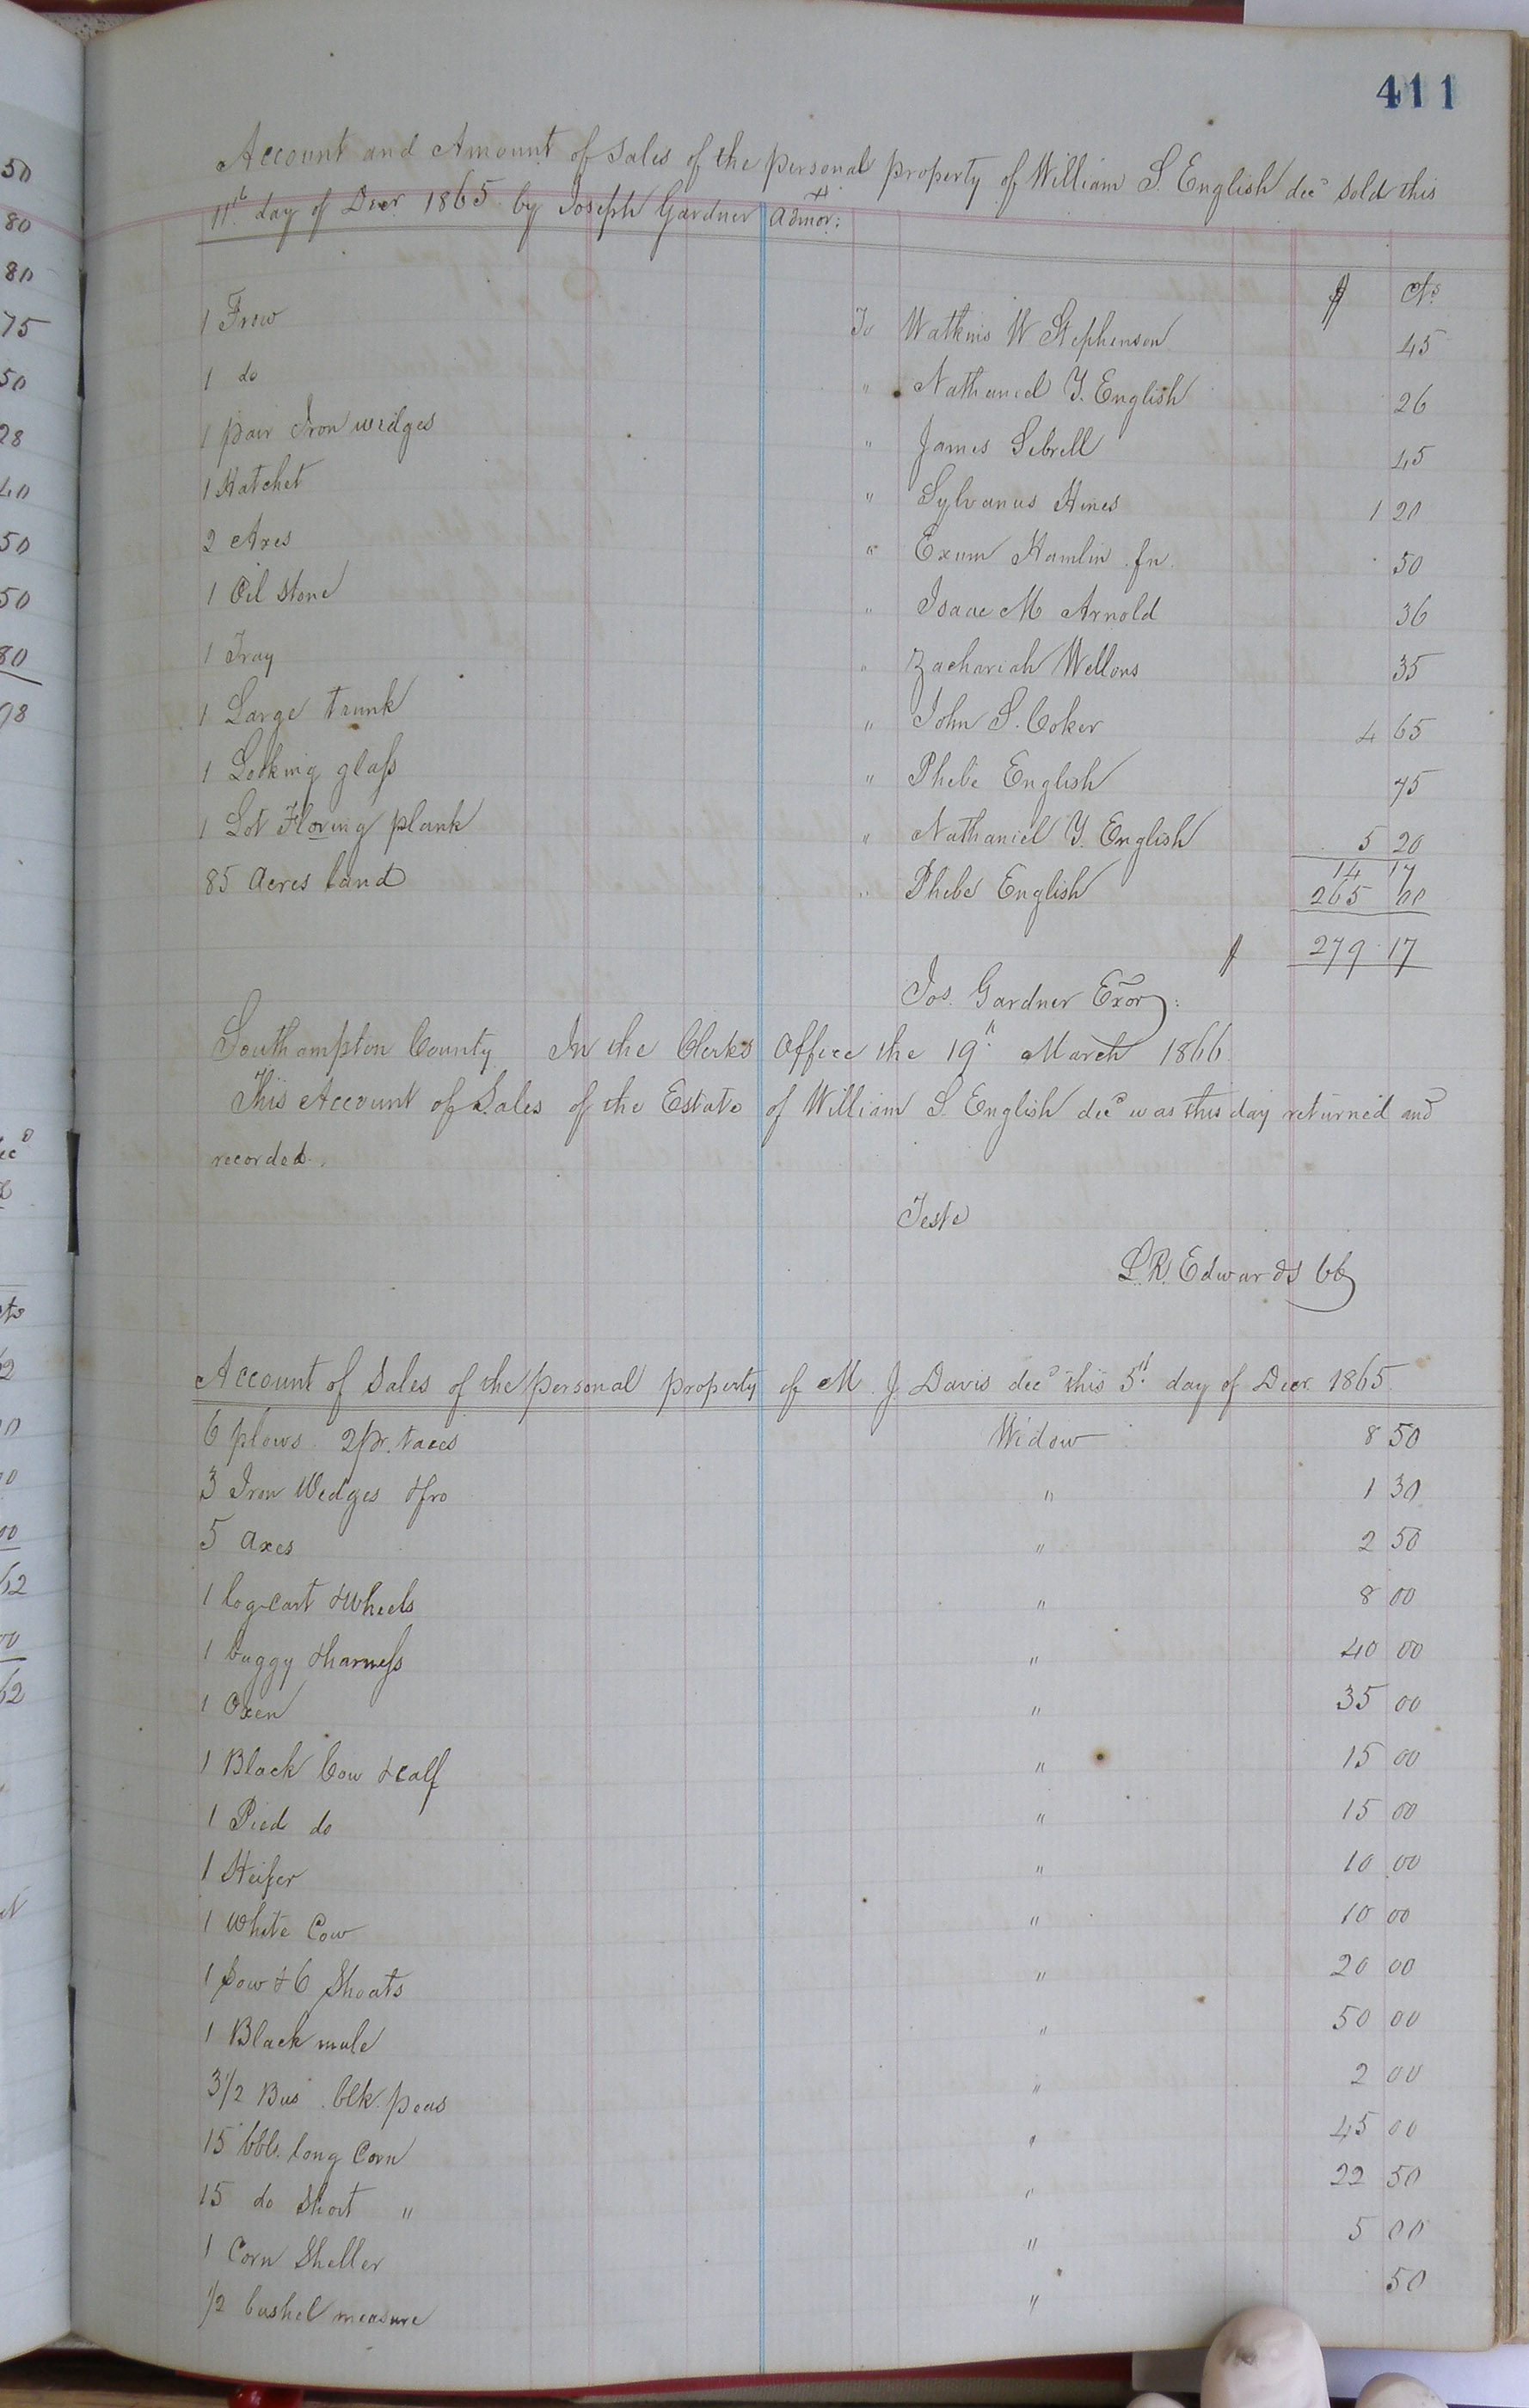 411
Account and Amount of Sales of the personal property of William S. English decd sold this
11th day of Decr 1865 by Joseph Gardner Admor:
$ Cts
1 Frow To Watkins W Stephenson 45
1 do " Nathaniel Y. English 26
1 pair Iron wedges " James Sebrell 45
1 Hatchet " Sylvanus Hines 1 20
2 Axes " Exum Hamlin Jn. 50
1 Oil stone " Isaac M Arnold 36
1 Tray " Zachariah Wellons 35
1 Large trunk " John S. Coker 4 65
1 Looking glass " Phebe English 75
1 Lot Floring plank " Nathaniel Y. English 5 20
14 17
85 Acres land " Phebe English 265 00
$ 279 17
Jos. Gardner Exor:
Southampton County In the Clerks Office the 19" March 1866
This Account of Sales of the Estate of William S. English decd was this day returned and
recorded.
Teste
L.R. Edwards CC
Account of Sales of the personal property of M. J Davis decd this 5" day of Decr 1865
6 plows 2 pr. taces Widow 8 50
3 Iron Wedges & fro " 1 30
5 axes " 2 50
1 log-cart & Wheels " 8 00
1 buggy & harness " 40 00
1 Oxen " 35 00
1 Black Cow & calf " 15 00
1 Pied do " 15 00
1 Heifer " 10 00
1 White Cow " 10 00
1 Sow & 6 Shoats " 20 00
1 Black mule " 50 00
3 1/2 Bus. blk. peas " 2 00
15 bbls. long Corn " 45 00
15 do Short " " 22 50
1 Corn Sheller " 5 00
1/2 bushel measure " 50